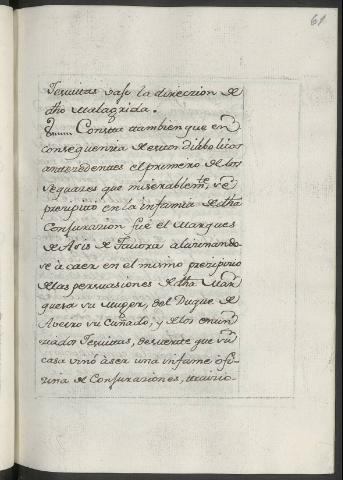 61
Jesuitas vaxo la direczion de
dho Malagrida.
Consta tambien que en
consequencia de estos diabolicos
antezedentes el primero de los
sequazes que miserablemte, se
prezipitó en la infamia de dha
Conjurazion fué el Marques
de Luis de Tavora arruinando-
se à caer en el mismo prezipizio
de las persuasiones de dha Mar-
quesa su Muger, del Duque de
Aveiro su Cuñado, y de los enun-
ziados Jesuitas, desuerte que su
casa vinó àser una infame ofi-
zina de Conjuraziones, traizio-